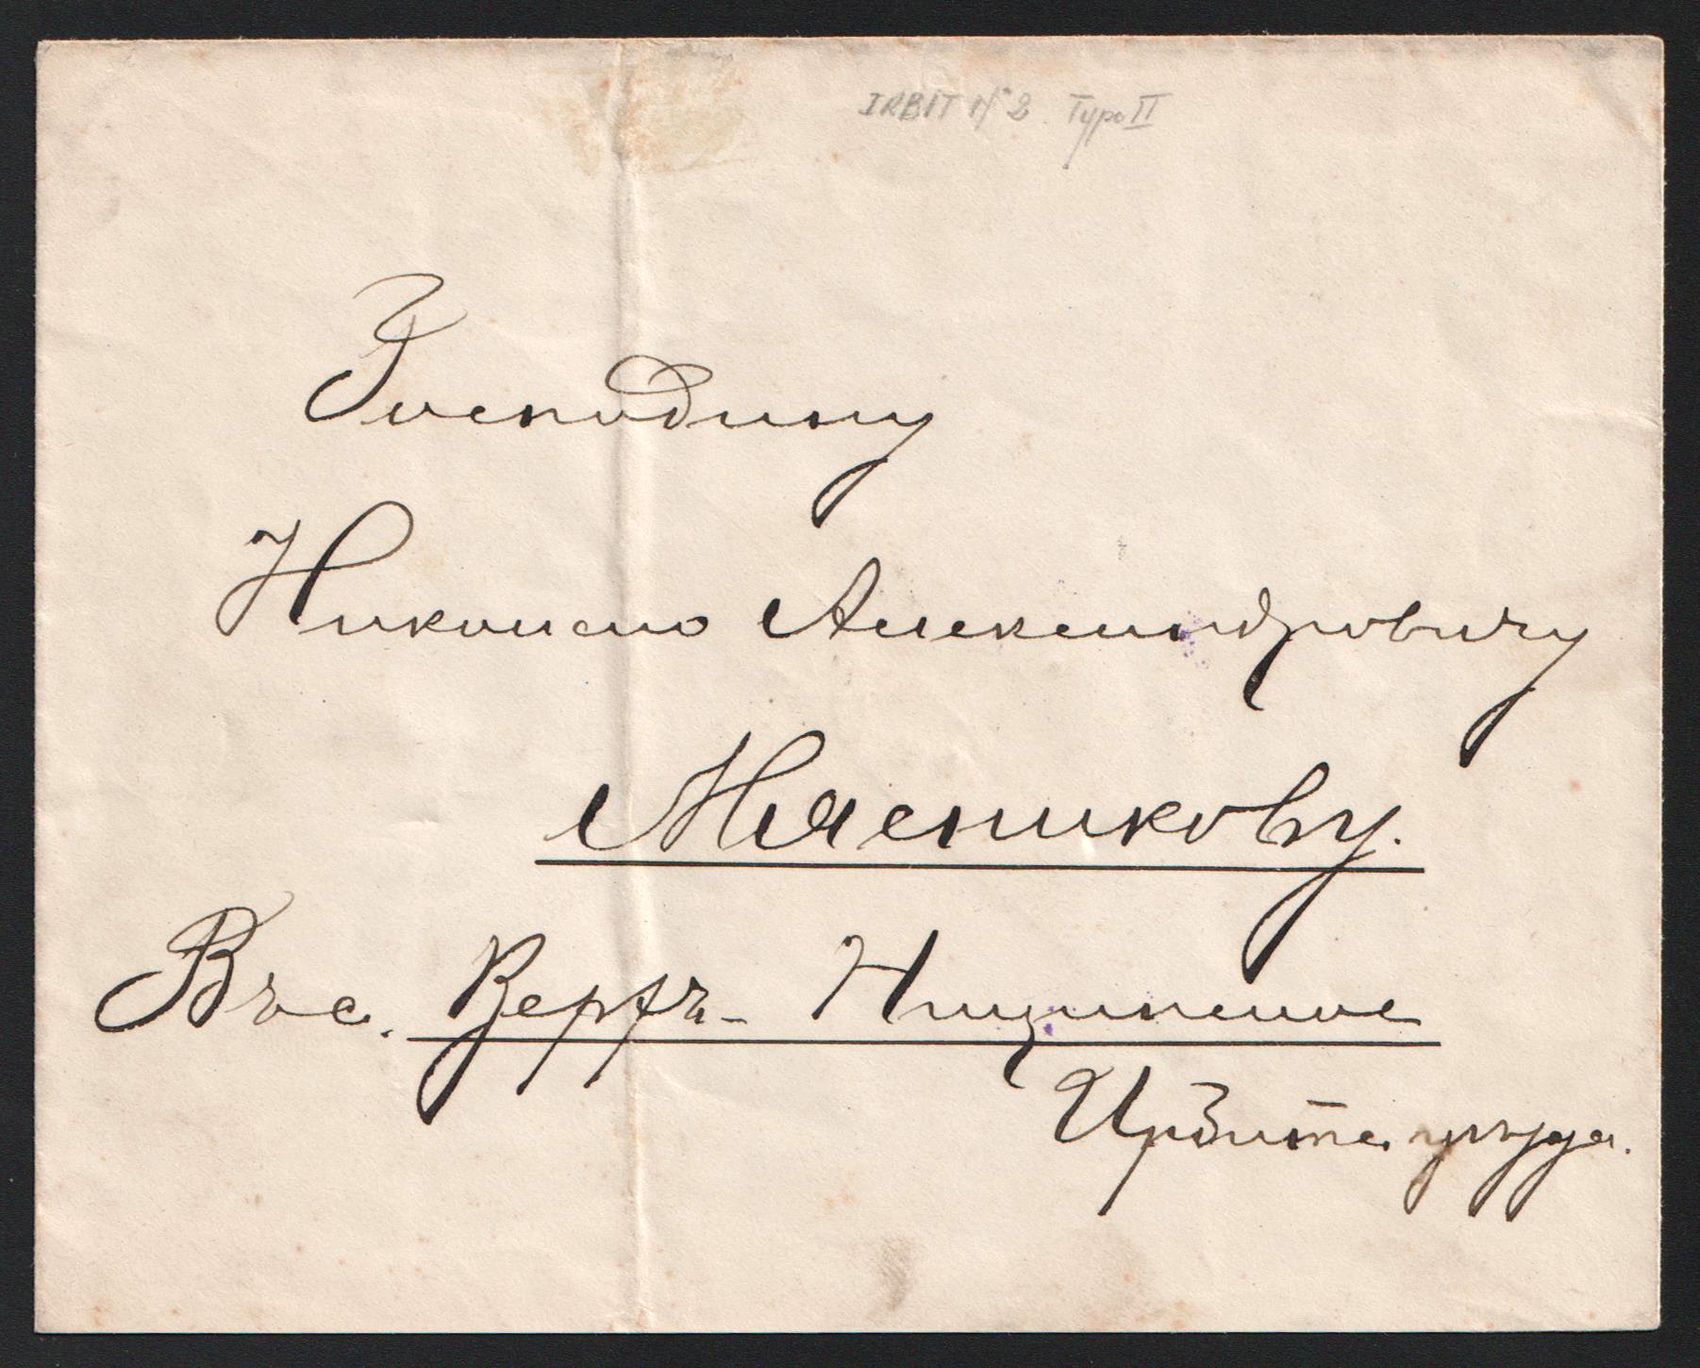 IRBIT N° 2 Typo II
Господину
Николаю Александровичу
Мясникову.
Въ с. Верхъ-Ницинское
Ирбитс. уѣзда.